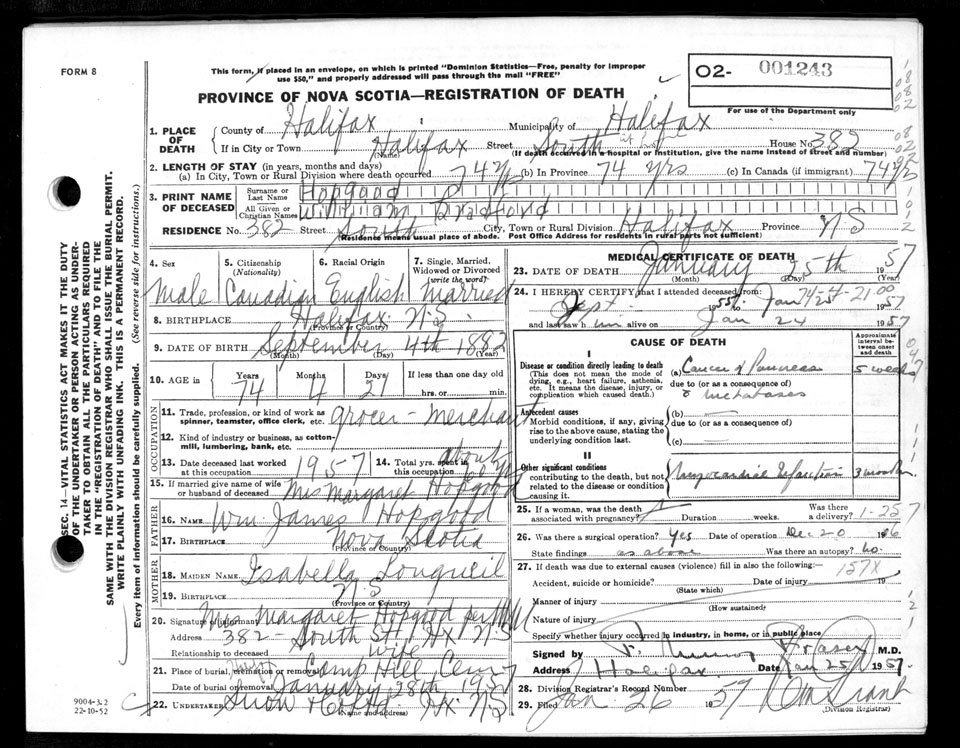 FORM 8
This form, if placed in an envelope, on which is printed "Dominion Statistics—Free, penalty for improper
use $50," and properly addressed will pass through the mail "FREE"
O2- 001243
For use of the Department only
PROVINCE OF NOVA SCOTIA—REGISTRATION OF DEATH
1. PLACE OF DEATH
County of Halifax Municipality of Halifax
If in City or Town Halifax (Name) Street South House No. 382
(If death occurred in a hospital or institution, give the name instead of street and number)
2. LENGTH OF STAY (in years, months and days)
(a) In City, Town or Rural Division where death occurred 74 yrs (b) In Province 74 yrs (c) In Canada (if immigrant) 74
3. PRINT NAME OF DECEASED
Surname or Last Name Hopgood
All Given or Christian Names William Bradford
RESIDENCE No. 382 Street South City, Town or Rural Division Halifax Province N.S
(Residence means usual place of abode. Post Office Address for residents in rural parts not sufficient)
4. Sex 5. Citizenship (Nationality) 6. Racial Origin 7. Single, Married, Widowed or Divorced (write the word)
Male Canadian English Married
8. BIRTHPLACE Halifax N.S.
(Province or Country)
9. DATE OF BIRTH September 4th 1882
(Month) (Day) (Year)
10. AGE in Years Months Days If less than one day old
74 4 21 hrs. or min.
OCCUPATION
11. Trade, profession, or kind of work as spinner, teamster, office clerk, etc. grocer - Merchant
12. Kind of industry or business, as cotton-mill, lumbering, bank, etc.
13. Date deceased last worked at this occupation 1957 14. Total yrs. spent in this occupation about
15. If married give name of wife or husband of deceased Mrs Margaret Hopgood
FATHER
16. NAME Wm James Hopgood
17. BIRTHPLACE Nova Scotia
(Province or Country)
MOTHER
18. MAIDEN NAME Isabella Longueil
19. BIRTHPLACE N.S
(Province or Country)
20. Signature of informant Mrs Margaret Hopgood per
Address 382 - South St. Hx N.S
Relationship to deceased wife
21. Place of burial, cremation or removal Camp Hill Cemy
Date of burial or removal January 28th 1957
22. UNDERTAKER Snow & Co Hx. N.S
(Name and address)
MEDICAL CERTIFICATE OF DEATH
23. DATE OF DEATH January 25th 1957
(Month) (Day) (Year)
24. I HEREBY CERTIFY that I attended deceased from:
Sept. Jan 1957
and last saw him alive on Jan 24 1957
CAUSE OF DEATH
Approximate interval between onset and death
I
Disease or condition directly leading to death
(This does not mean the mode of dying, e.g., heart failure, asthenia, etc. It means the disease, injury, or complication which caused death.)
(a) Cancer of Pancreas 5 weeks
due to (or as a consequence of)
metastases
Antecedent causes
Morbid conditions, if any, giving rise to the above cause, stating the underlying condition last.
(b)
due to (or as a consequence of)
(c)
II
Other significant conditions contributing to the death, but not related to the disease or condition causing it.
Myocardial Infarction 3 months
25. If a woman, was the death associated with pregnancy? Duration weeks. Was there a delivery? 1-257
26. Was there a surgical operation? yes Date of operation Dec 20 1956
State findings as above Was there an autopsy? no.
27. If death was due to external causes (violence) fill in also the following:— 157X
Accident, suicide or homicide? Date of injury 19
(State which)
Manner of injury
(How sustained)
Nature of injury
Specify whether injury occurred in industry, in home, or in public place
Signed by Fraser M.D.
Address Halifax Date Jan 25 1957
28. Division Registrar's Record Number
29. Filed Jan 26 1957
(Division Registrar)
SEC. 14—VITAL STATISTICS ACT MAKES IT THE DUTY
OF THE UNDERTAKER OR PERSON ACTING AS UNDERTAKER TO OBTAIN ALL THE PARTICULARS REQUIRED
IN THE "REGISTRATION OF DEATH" AND TO FILE THE
SAME WITH THE DIVISION REGISTRAR WHO SHALL ISSUE THE BURIAL PERMIT.
WRITE PLAINLY WITH UNFADING INK. THIS IS A PERMANENT RECORD.
Every item of information should be carefully supplied. (See reverse side for instructions.)
9004-3.2
22-10-52